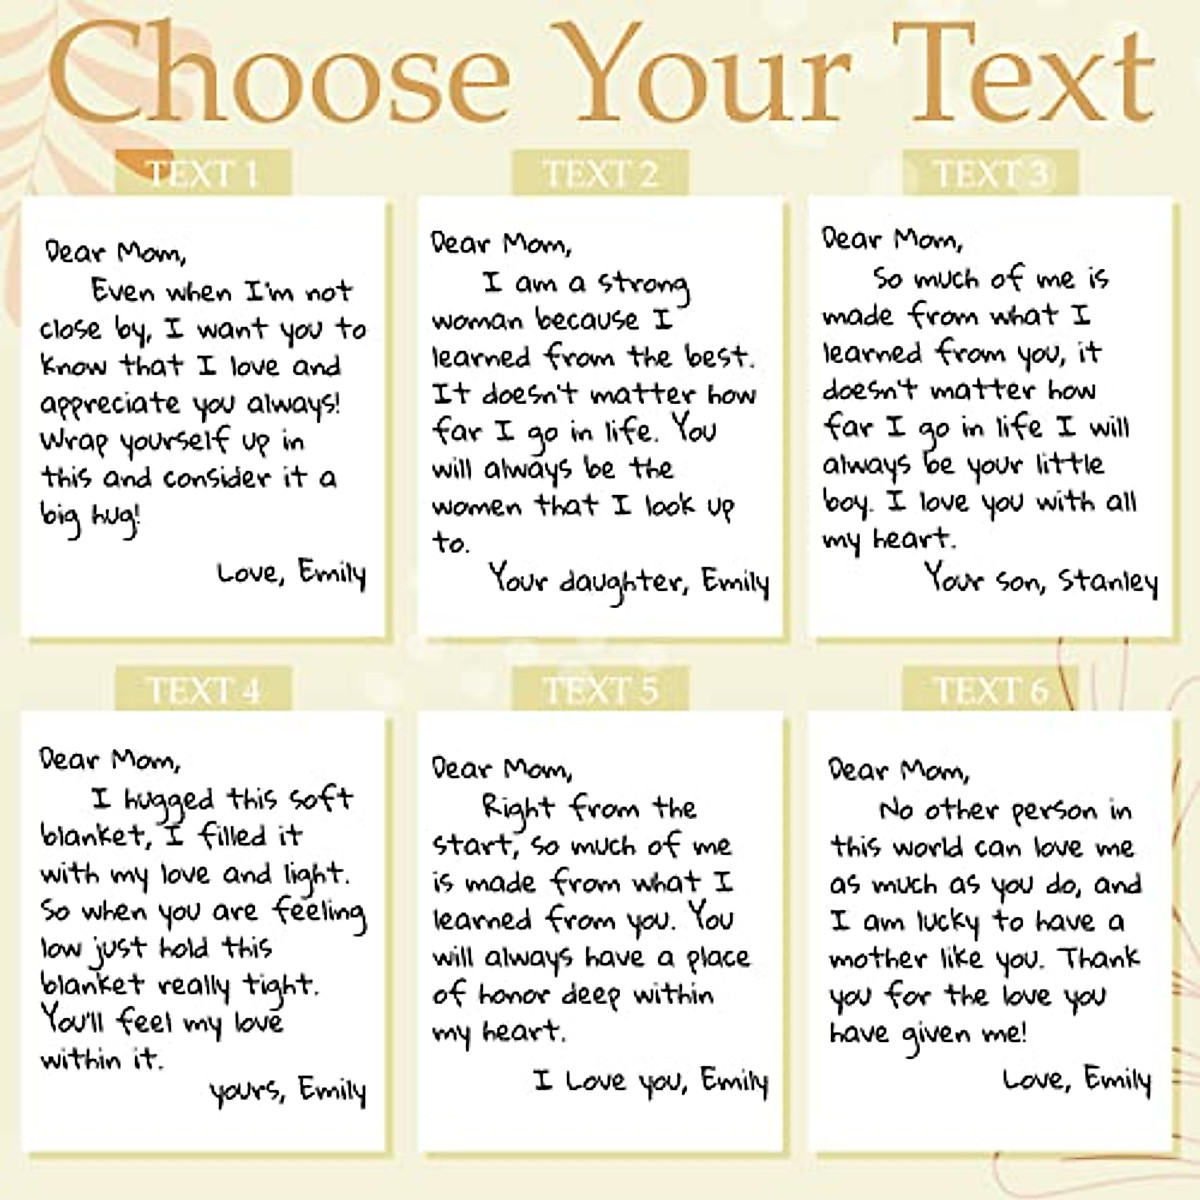 Choose Your Text
TEXT 1
Dear Mom,
Even when I'm not
close by, I want you to
know that I love and
appreciate you always!
Wrap yourself up in
this and consider it a
big hug!
Love, Emily
TEXT 2
Dear Mom,
I am a strong
woman because I
learned from the best.
It doesn't matter how
far I go in life. You
will always be the
women that I look up
to.
Your daughter, Emily
TEXT 3
Dear Mom,
So much of me is
made from what I
learned from you, it
doesn't matter how
far I go in life I will
always be your little
boy. I love you with all
my heart.
Your son, Stanley
TEXT 4
Dear Mom,
I hugged this soft
blanket, I filled it
with my love and light.
So when you are feeling
low just hold this
blanket really tight.
You'll feel my love
within it.
yours, Emily
TEXT 5
Dear Mom,
Right from the
start, so much of me
is made from what I
learned from you. You
will always have a place
of honor deep within
my heart.
I Love you, Emily
TEXT 6
Dear Mom,
No other person in
this world can love me
as much as you do, and
I am lucky to have a
mother like you. Thank
you for the love you
have given me!
Love, Emily